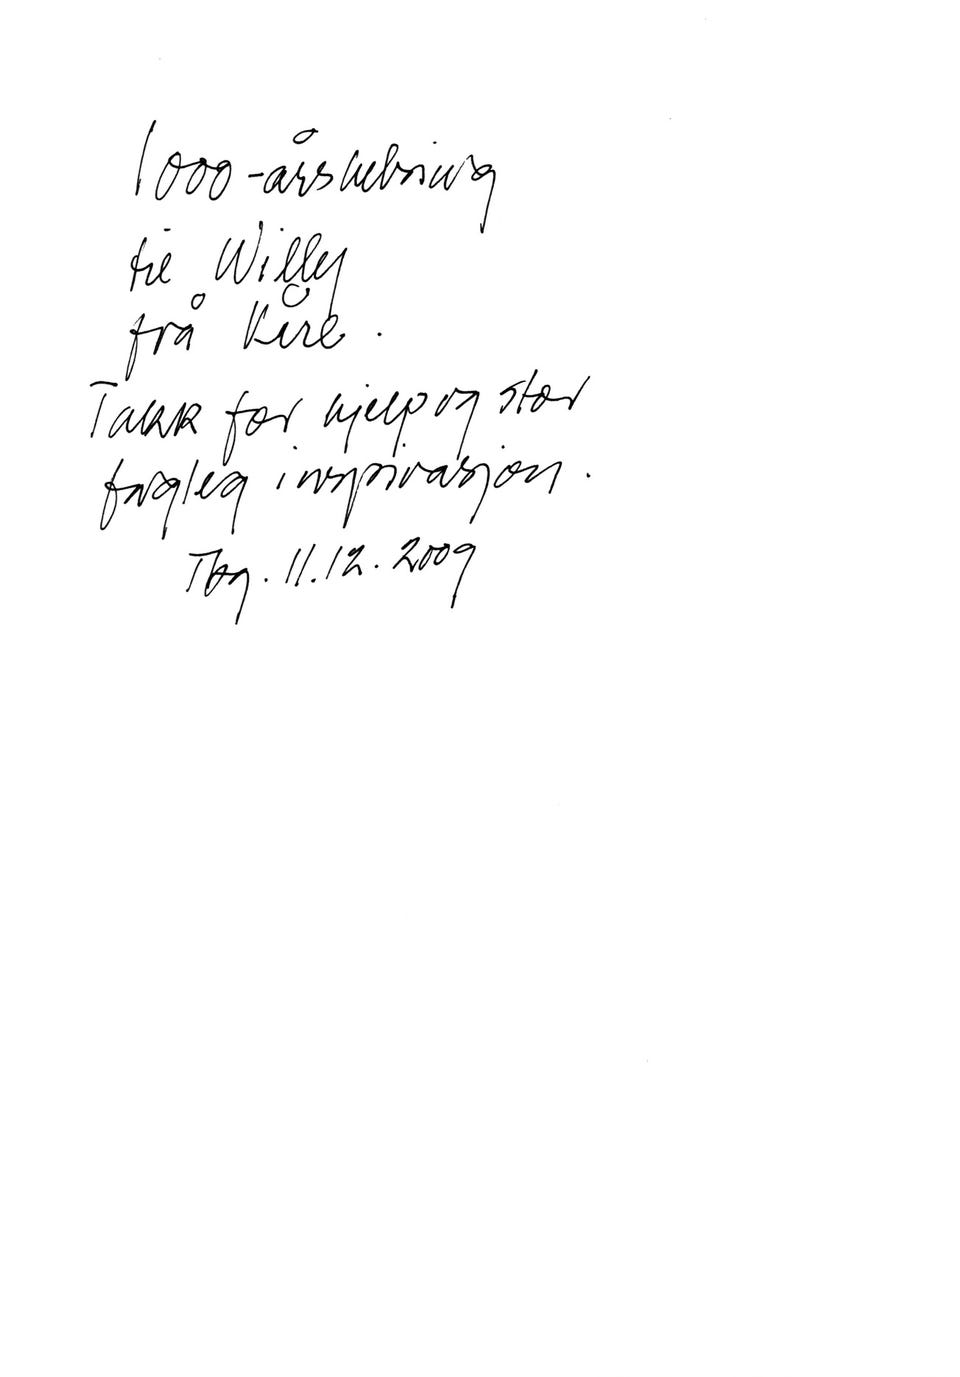 1000-årshelsing
til Willy
frå Kåre.
Takk for hjelp og stor
fagleg inspirasjon.
Tbg. 11.12.2009